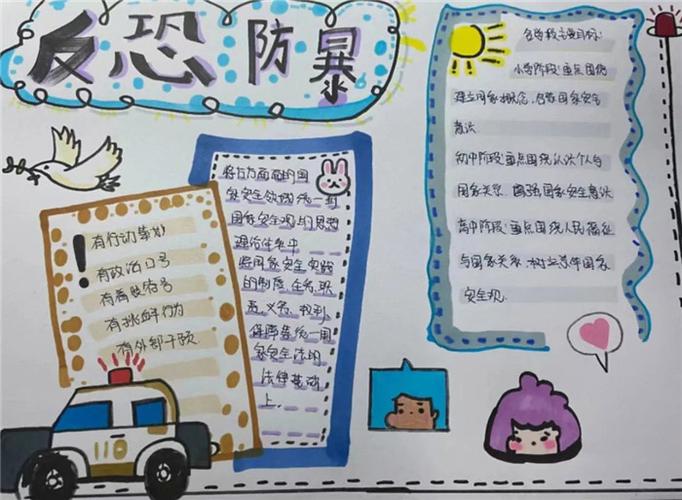 反恐防暴
各学段主要目标:
小学阶段:重点围绕
建立国家概念,启蒙国家安全
意识
初中阶段:重点围绕认识个人与
国家关系,增强国家安全意识
高中阶段:重点围绕人民福祉
与国家关系,树立总体国家
安全观.
将各方面面的国
家安全领域统一到
国家安全观与思想
理论体系中
将国家安全实践
的制度、任务、职
责、义务、权利、
保障等统一国
家安全法的
法律基础
上.
!
有行动策划
有政治口号
有着装符号
有挑衅行为
有外部干预
110